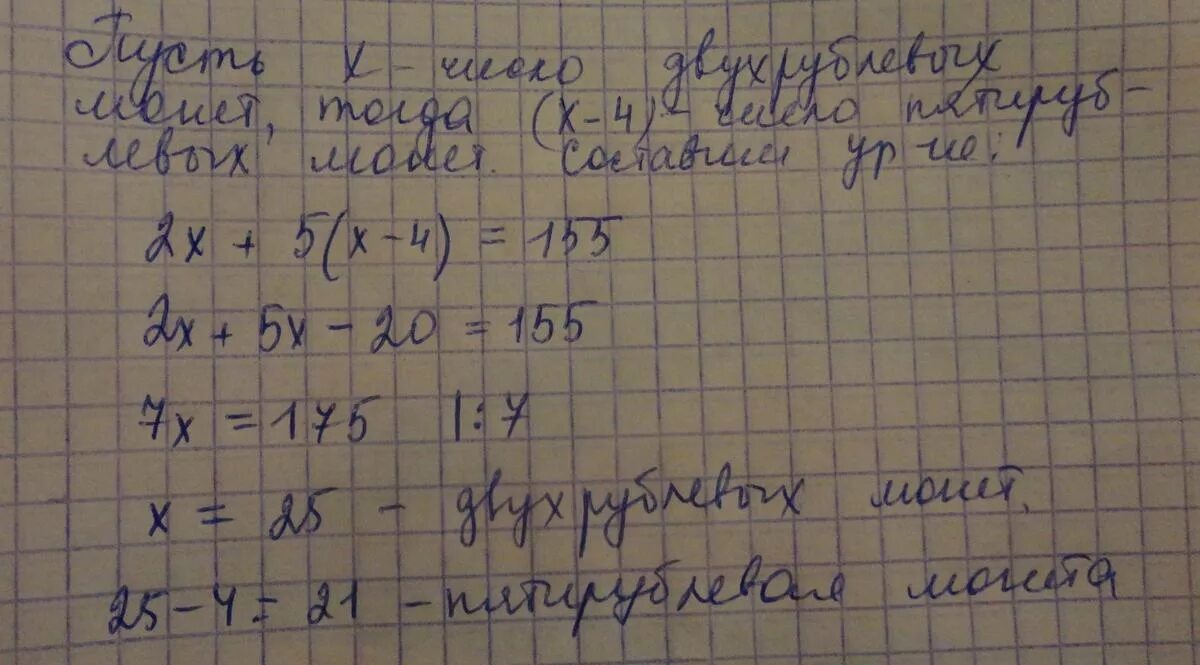 Пусть х - число двухрублевых
монет, тогда (х-4) - число пятируб-
левых монет. Составим ур-ие:
2х + 5(х-4) = 155
2х + 5х - 20 = 155
7х = 175 |:7
х = 25 - двухрублевых монет.
25-4 = 21 - пятирублевая монета